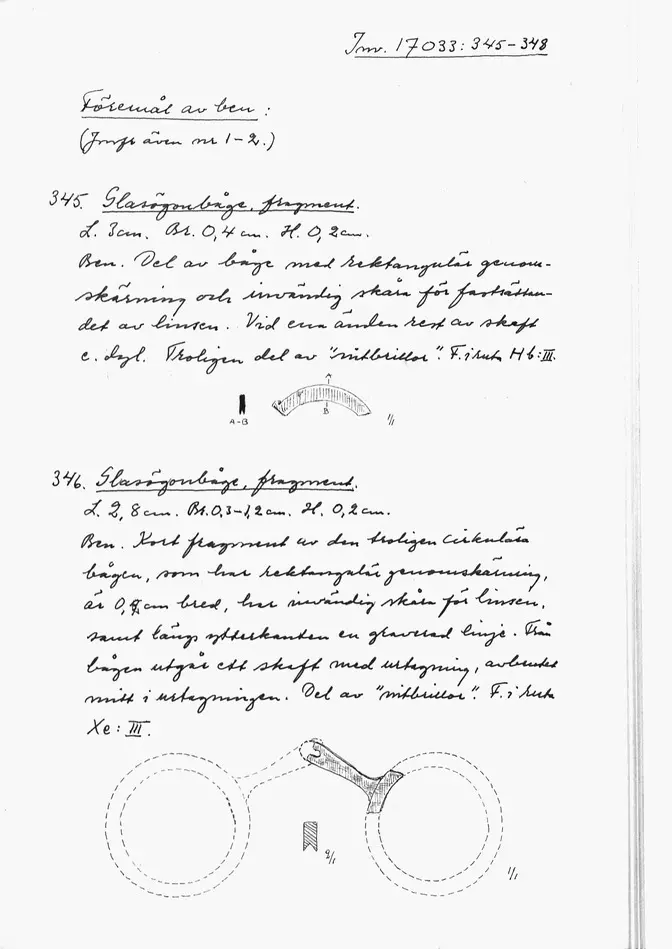 Inv. 17033:345-348
Föremål av ben :
(Jmfr även nr 1-2.)
345. Glasögonbåge, fragment.
L. 3cm. Br. 0,4 cm. H. 0,2cm.
Ben. Del av båge med rektangulär genom-
skärning och invändig skåra för fastsättan-
det av linsen. Vid ena änden rest av skaft
e. dyl. Troligen del av "nitbrillor". F. i ruta Hb:III.
A
B
A-B
1/1
346. Glasögonbåge, fragment.
L. 2,8cm. Br. 0,3-1,2cm. H. 0,2cm.
Ben. Kort fragment av den troligen cirkulära
bågen, som har rektangulär genomskärning,
är 0, cm bred, har invändig skåra för linsen,
samt längs ytterkanten en graverad linje. Från
bågen utgår ett skaft med urtagning, avbrutet
mitt i urtagningen. Del av "nitbrillor". F. i ruta
Xe: III.
2/1
1/1